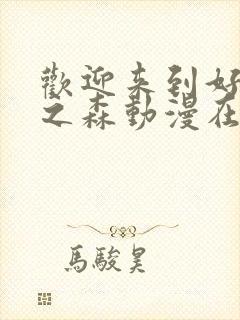 歡迎来到好
之森動漫在
馬駿昊